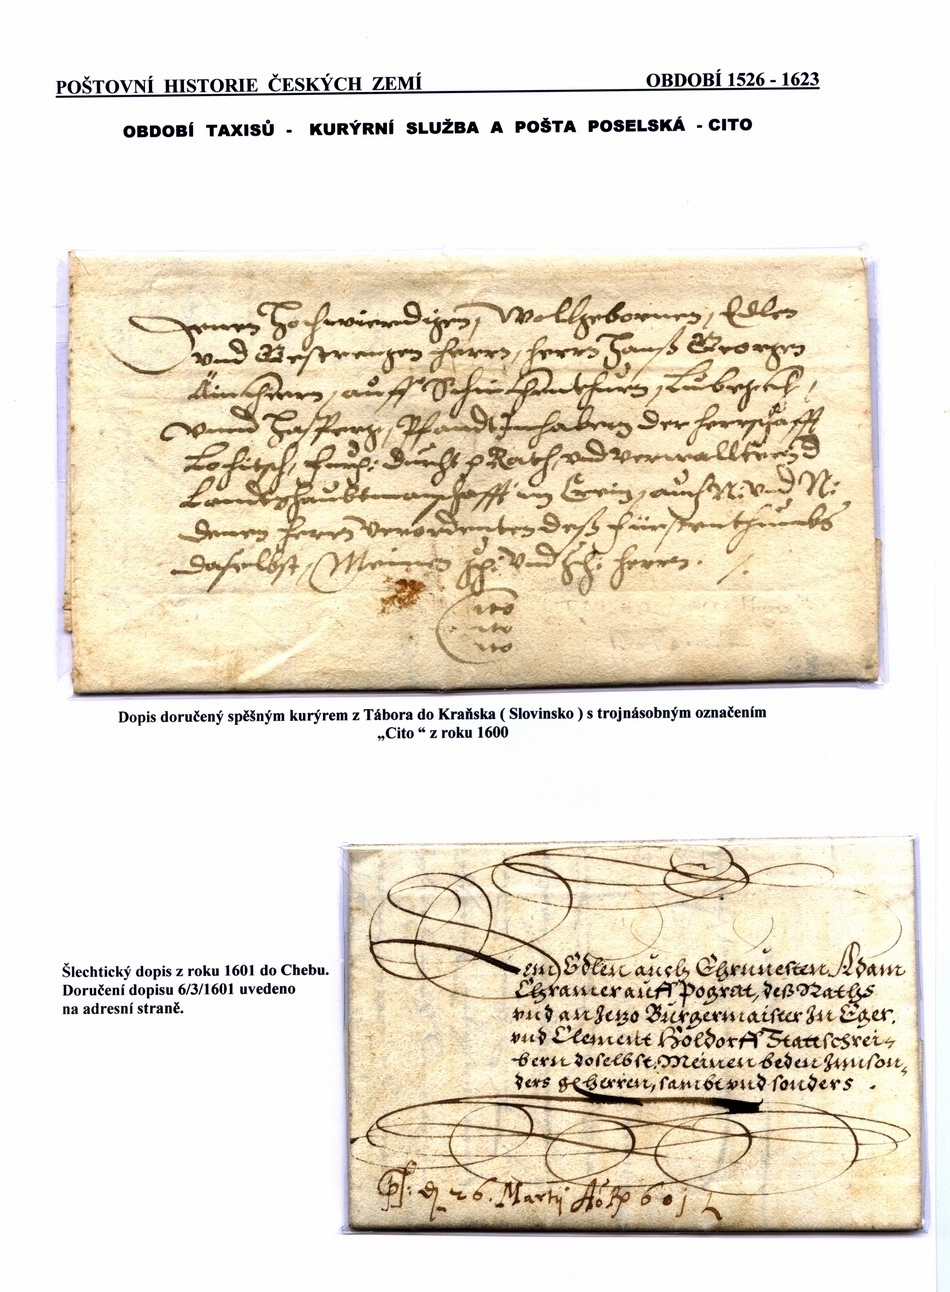 POŠTOVNÍ HISTORIE ČESKÝCH ZEMÍ OBDOBÍ 1526 - 1623
OBDOBÍ TAXISŮ - KURÝRNÍ SLUŽBA A POŠTA POSELSKÁ - CITO
Denen Hochwierdigen, Wollgebornen, Edlen
vnd Gestrengen Herrn, Herrn Hanß Georgen
auff
vnnd Pfandt Inhabern der Herrschafft
Rath, vnd
Landtshaubtmanschafft in Crein, auch N: vnd N:
denen Herrn verordenten deß Fürstenthumbs
daselbst, Meinen vnd Herrn.
Cito
ito
ito
Dopis doručený spěšným kurýrem z Tábora do Kraňska ( Slovinsko ) s trojnásobným označením
„Cito “ z roku 1600
Šlechtický dopis z roku 1601 do Chebu.
Doručení dopisu 6/3/1601 uvedeno
na adresní straně.
Dem Edlen auch Ehrnuesten, Adam
Chramer auff Pograt, deß Raths
vnd an Jetzo Burgermaister Zu Eger,
vnd Clement Höldorff Stattschrei-
bern doselbst, Meinen beden Innson,
ders geherren, sambt vnd sonders .
26. Martij 601